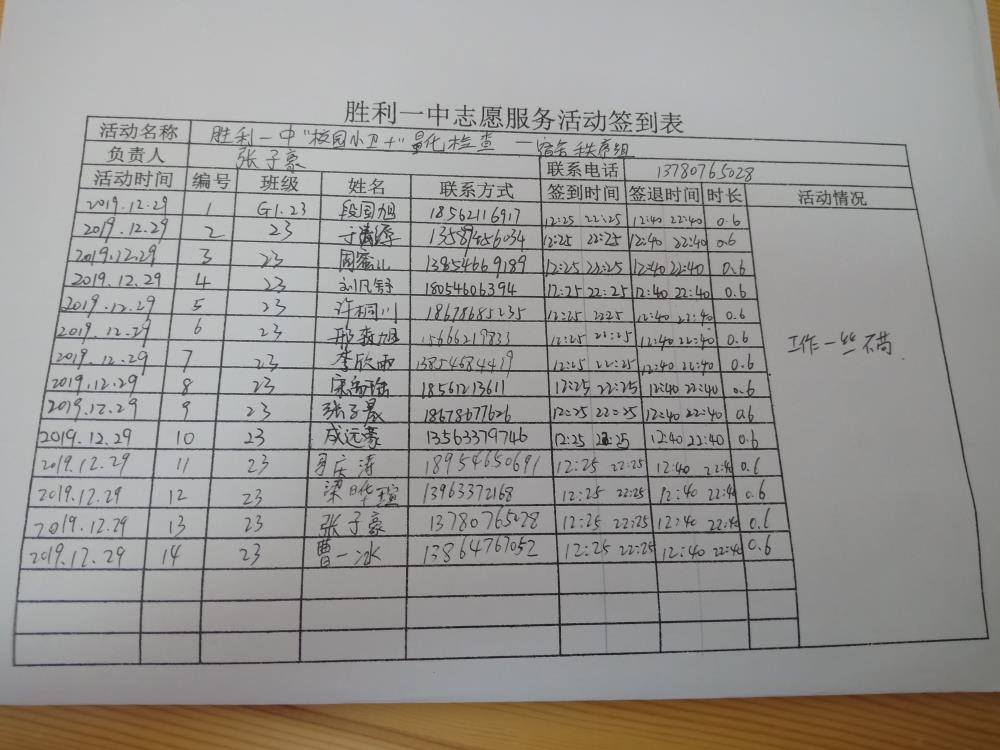 胜利一中志愿服务活动签到表
活动名称 胜利一中"校园小卫士"量化检查 —宿舍秩序组
负责人 张子豪 联系电话 13780765028
活动时间 编号 班级 姓名 联系方式 签到时间 签退时间 时长 活动情况
2019.12.29 1 G1.23 段国旭 18562116917 12:25 22:25 12:40 22:40 0.6
2019.12.29 2 23 12:25 22:25 12:40 22:40 0.6
2019.12.29 3 23 13854669189 12:25 22:25 12:40 22:40 0.6
2019.12.29 4 23 刘凡舒 18054606394 12:25 22:25 12:40 22:40 0.6
2019.12.29 5 23 许桐川 18678685235 12:25 22:25 12:40 22:40 0.6
2019.12.29 6 23 邢森旭 15666219833 12:25 22:25 12:40 22:40 0.6
2019.12.29 7 23 李欣雨 13854684419 12:25 22:25 12:40 22:40 0.6
2019.12.29 8 23 18561213611 12:25 22:25 12:40 22:40 0.6
2019.12.29 9 23 张子晟 18678677626 12:25 22:25 12:40 22:40 0.6
2019.12.29 10 23 成远豪 13563379746 12:25 22:25 12:40 22:40 0.6
2019.12.29 11 23 18954650691 12:25 22:25 12:40 22:40 0.6
2019.12.29 12 23 梁晔瑄 13963372168 12:25 22:25 12:40 22:40 0.6
2019.12.29 13 23 张子豪 13780765028 12:25 22:25 12:40 22:40 0.6
2019.12.29 14 23 曹一冰 13864767052 12:25 22:25 12:40 22:40 0.6
工作一丝不苟.